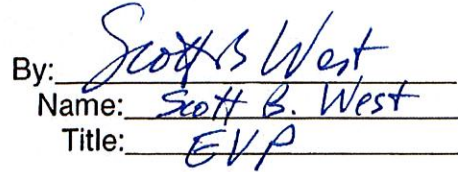 By: Scott B West
Name: Scott B. West
Title: EVP